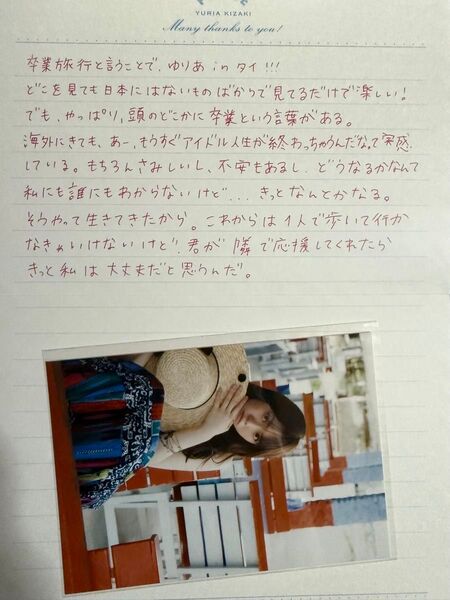 YURIA KIZAKI
Many thanks to you!
卒業旅行と言うことで、ゆりあ in タイ!!!
どこを見ても日本にはないものばかりで見てるだけで楽しい!
でも、やっぱり、頭のどこかに卒業という言葉がある。
海外にきても、あー、もうすぐアイドル人生が終わっちゃうんだなって実感
している。もちろんさみしいし、不安もあるし、どうなるかなんて
私にも誰にもわからないけど…きっとなんとかなる。
そうやって生きてきたから。これからは1人で歩いて行か
なきゃいけないけど、君が隣で応援してくれたら
きっと私は大丈夫だと思うんだ。